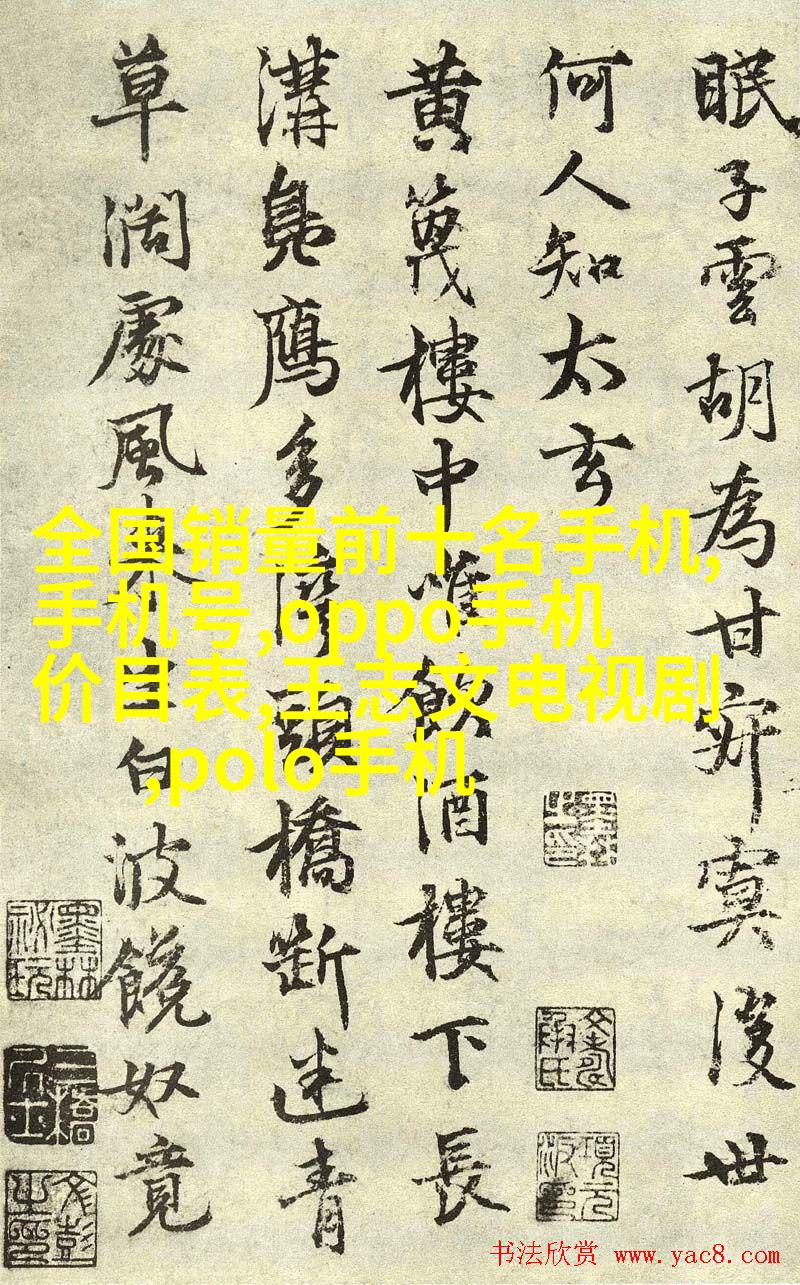 眠子雲胡為甘寂寞後世
何人知太玄
黄篾樓中唯飲酒樓下長
溝凫鴈多潭頭橋斷迷青
草濶處風来白波饒奴竟
全国销量前十名手机,
手机号,oppo手机
价目表,王志文电视剧
,polo手机
书法欣赏 www.yac8.com